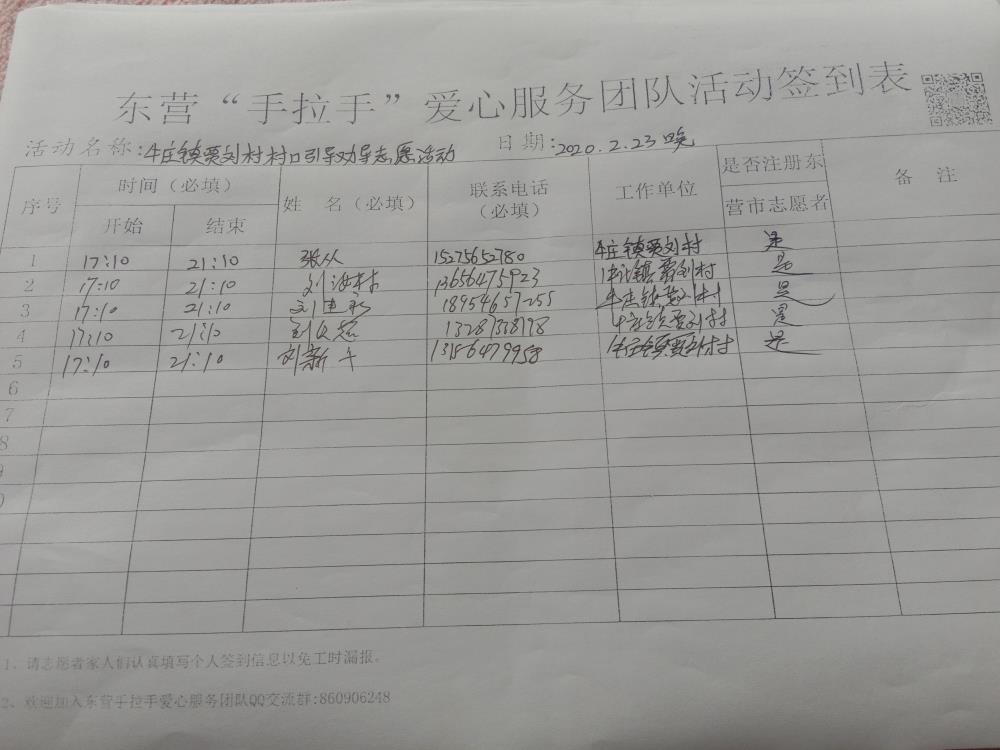 东营“手拉手”爱心服务团队活动签到表
活动名称:牛庄镇贾刘村村口引导劝导志愿活动 日期:2020.2.23晚
序号 时间（必填） 姓 名（必填） 联系电话（必填） 工作单位 是否注册东营市志愿者 备 注
开始 结束
1 17:10 21:10 张从 15275652780 牛庄镇贾刘村 是
2 17:10 21:10 刘海林 13656475923 牛庄镇贾刘村 是
3 17:10 21:10 18954657255 牛庄镇贾刘村 是
4 17:10 21:10 牛庄镇贾刘村 是
5 17:10 21:10 刘新 13156479958 牛庄镇贾刘村 是
6
7
8
1、请志愿者家人们认真填写个人签到信息以免工时漏报。
2、欢迎加入东营手拉手爱心服务团队QQ交流群:860906248